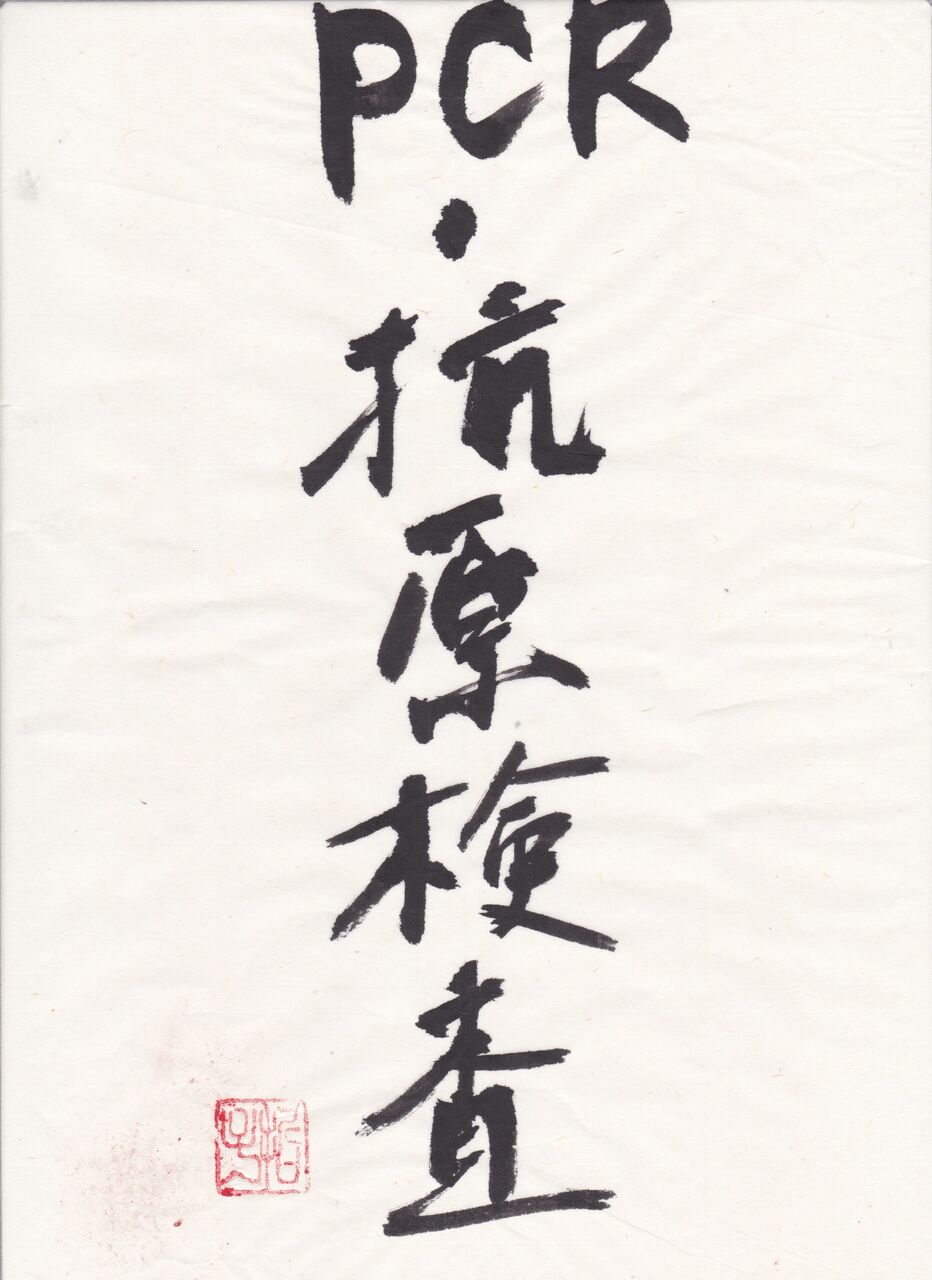 PCR・抗原検査